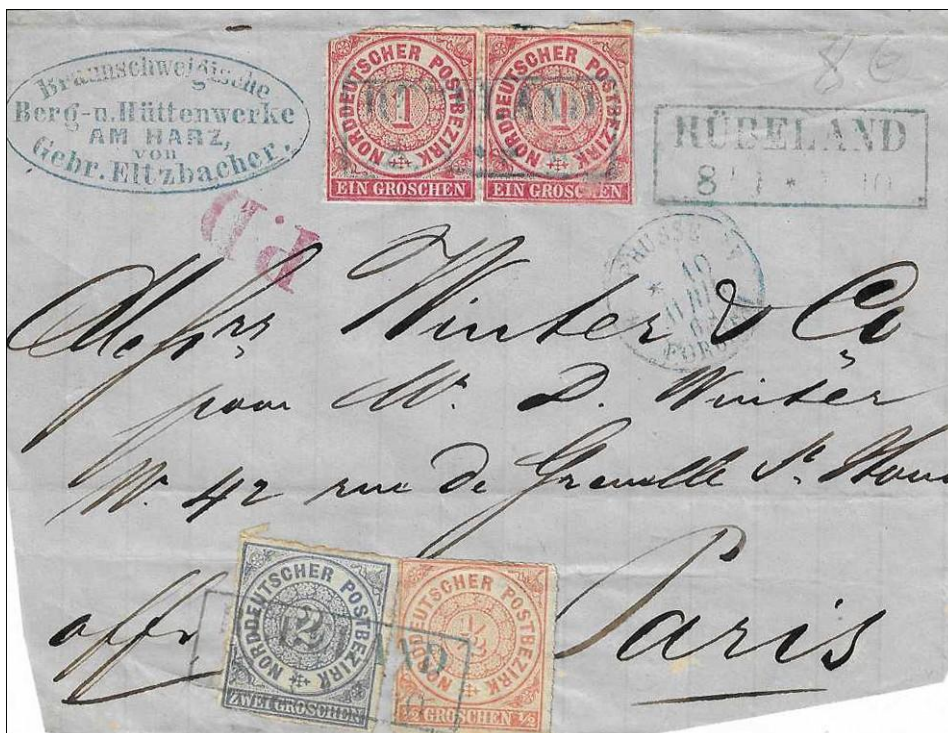 Braunschweigische
Berg-u. Hüttenwerke
AM HARZ,
von
Gebr. Eltzbacher.
NORDDEUTSCHER POSTBEZIRK
1
EIN GROSCHEN
NORDDEUTSCHER POSTBEZIRK
1
EIN GROSCHEN
RÜBELAND
8
P.D.
PRUSSE
10
Messrs Winter & Co
pour Mr. D. Winter
No. 42 rue de Grenelle St.
Paris
NORDDEUTSCHER POSTBEZIRK
2
ZWEI GROSCHEN
NORDDEUTSCHER POSTBEZIRK
1/2
1/2 GROSCHEN 1/2